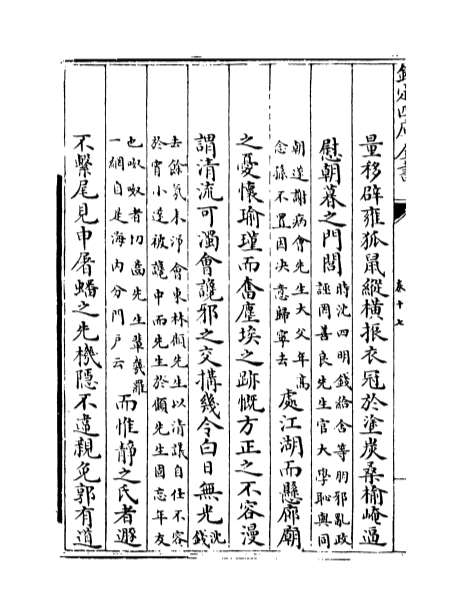 欽定四庫全書
卷十七
量移辟雍狐鼠縱横振衣冠於塗炭桑榆崦逼
慰朝暮之門閭
時沈四明錢給舍等朋邪亂政
誣罔善良先生官大學恥與同
朝遂謝病會先生大父年高
念孫不置因决意歸寧去
處江湖而懸廊廟
之憂懷瑜瑾而奮塵埃之跡慨方正之不容漫
謂清流可濁會讒邪之交搆幾令白日無光
沈
錢
去餘氛未淨會東林顧先生以清議自任不容
於宵小遂被讒中而先生於顧先生固忘年友
也呶呶者切齒先生輩幾羅
一網自是海内分門户云
而惟静之氏者遯
不繫尾見申屠蟠之先機隱不違親免郭有道